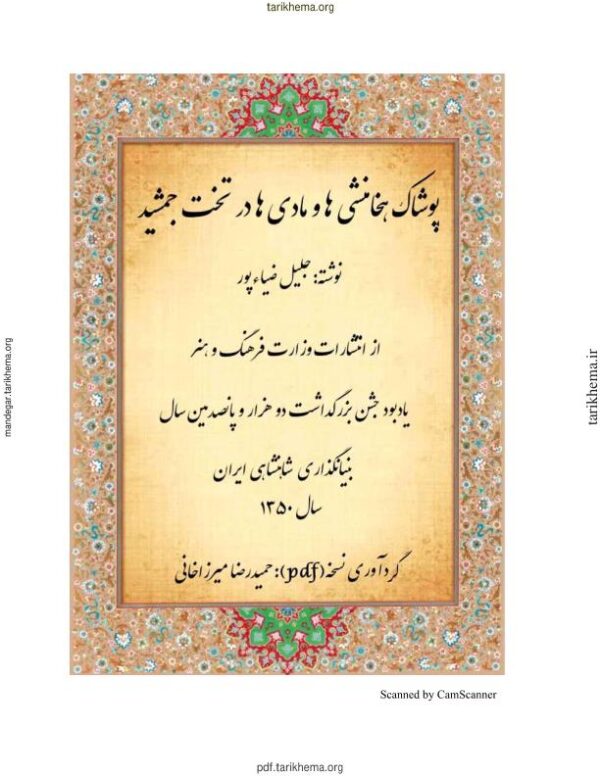 tarikhema.org
پوشاک هخامنشی ها و مادی ها در تخت جمشید
نوشته: جلیل ضیاءپور
از انتشارات وزارت فرهنگ و هنر
یادبود جشن بزرگداشت دو هزار و پانصدمین سال
بنیانگذاری شاهنشاهی ایران
سال ۱۳۵۰
گردآوری نسخه(pdf): حمیدرضا میرزاخانی
mandegar.tarikhema.org
tarikhema.ir
Scanned by CamScanner
pdf.tarikhema.org